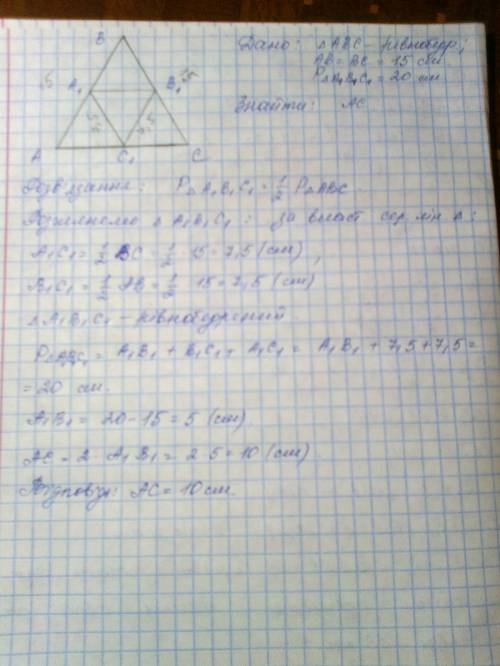 B
Дано: △ ABC - рівнобедр;
AB = BC = 15 см.
P△A₁B₁C₁ = 20 см
A₁ B₁ 15
Знайти: AC
7,5 7,5
A C₁ C
Розв'язання: P△A₁B₁C₁ = 1/2 P△ABC.
Розглянемо △ A₁B₁C₁: за власт сер. лін △:
A₁C₁ = 1/2 BC = 1/2 · 15 = 7,5 (см),
B₁C₁ = 1/2 AB = 1/2 · 15 = 7,5 (см)
△ A₁B₁C₁ - рівнобедрений.
A₁B₁ + B₁C₁ + A₁C₁ = A₁B₁ + 7,5 + 7,5 =
= 20 см.
A₁B₁ = 20 - 15 = 5 (см)
AC = 2 A₁B₁ = 2 · 5 = 10 (см)
AC = 10 см.